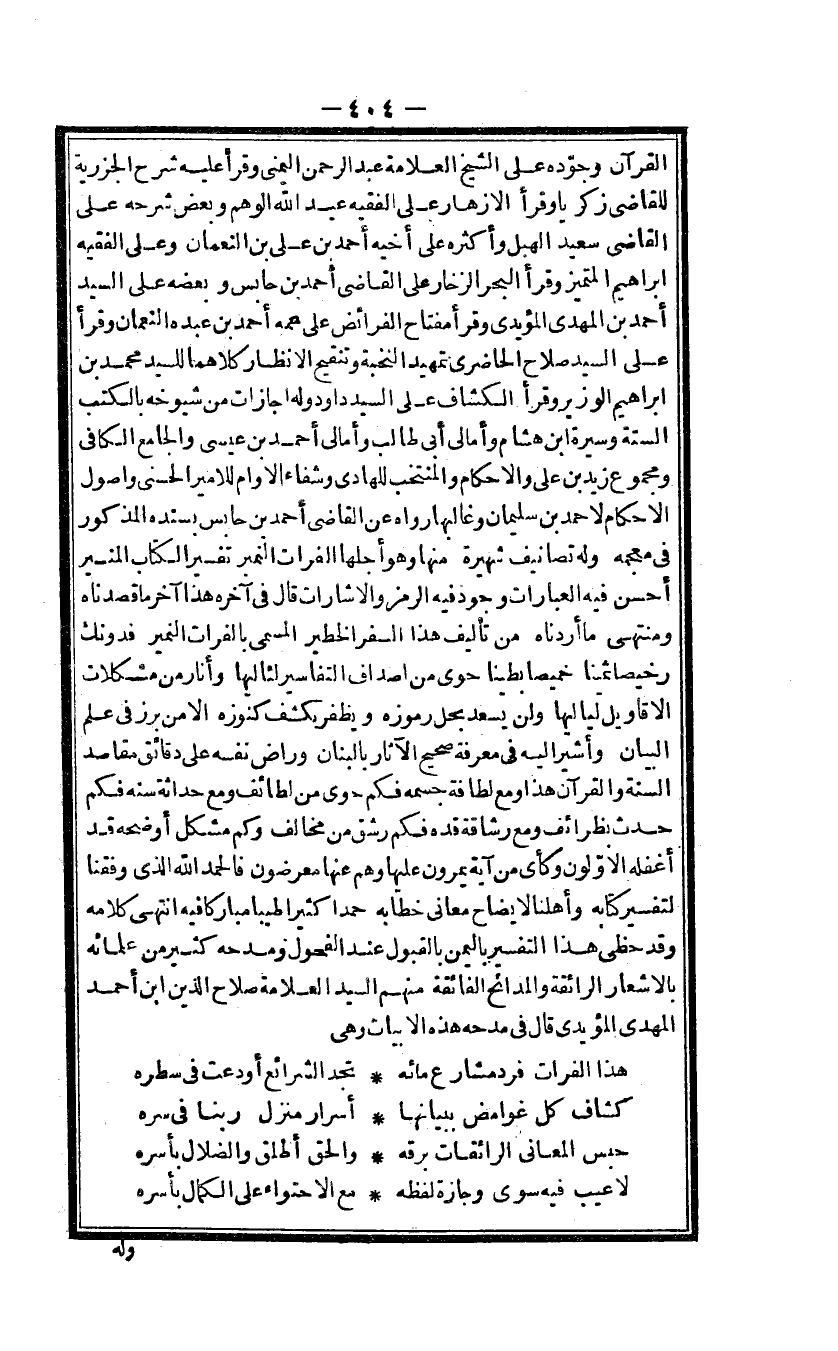 — ٤٠٤ —
القرآن وجوّده على الشيخ العلامة عبد الرحمن اليمني وقرأ عليه شرح الجزرية
للقاضى زكريا وقرأ الازهار على الفقيه عبد الله الوهم وبعض شرحه على
القاضى سعيد الهبل وأكثره على أخيه أحمد بن على بن النعمان وعلى الفقيه
ابراهيم المتميز وقرأ البحر الزخار على القاضى أحمد بن حابس وبعضه على السيد
أحمد بن المهدى المؤيدى وقرأ مفتاح الفرائض على عمه أحمد بن عبده النعمان وقرأ
على السيد صلاح الحاضرى تمهيد النخبة وتنقيح الانظار كلاهما للسيد محمد بن
ابراهيم الوزير وقرأ الكشاف على السيد داود وله اجازات من شيوخه بالكتب
الستة وسيرة ابن هشام وأمالى أبى طالب وأمالى أحمد بن عيسى والجامع الكافى
ومجموع زيد بن على والاحكام والمنتخب للهادى وشفاء الاوام للامير الحسنى واصول
الاحكام لاحمد بن سليمان وغالبها رواه عن القاضى أحمد بن حابس بسنده المذكور
فى معجمه وله تصانيف شهيرة منها وهو أجلها الفرات النمير تفسير الكتاب المنير
أحسن فيه العبارات وجود فيه الرمز والاشارات قال فى آخره هذا آخر ما قصدناه
ومنتهى ما أردناه من تأليف هذا السفر الخطير المسمى بالفرات النمير فدونك
رخيصا ثمنا خميصا بطينا حوى من اصداف التفاسير لئاليها وأنار من مشكلات
الاقاويل لياليها ولن يسعد بحل رموزه ويظفر بكشف كنوزه الا من برز فى علم
البيان وأشير اليه فى معرفة صحيح الآثار بالبنان وراض نفسه على دقائق مقاصد
السنة والقرآن هذا ومع لطافة جسمه فكم حوى من لطائف ومع حداثة سنه فكم
حدث بظرائف ومع رشاقة قده فكم رشق من مخالف وكم مشكل أوضحه قد
أغفله الاوّلون وكأى من آية يمرون عليها وهم عنها معرضون فالحمد الله الذى وفقنا
لتفسير كتابه وأهلنا لايضاح معانى خطابه حمدا كثيرا طيبا مباركا فيه انتهى كلامه
وقد حظى هذا التفسير باليمن بالقبول عند الفحول ومدحه كثير من علمائه
بالاشعار الرائقة والمدائح الفائقة منهم السيد العلامة صلاح الدين ابن أحمد
المهدى المؤيدى قال فى مدحه هذه الابيات وهى
هذا الفرات فرد مشارع مائه * تجد الشرائع أودعت فى سطره
كشاف كل غوامض ببيانها * أسرار منزل ربنا فى سره
حبس المعانى الرائقات برقه * والحق أطلق والضلال بأسره
لا عيب فيه سوى وجازة لفظه * مع الاحتواء على الكمال بأسره
وله